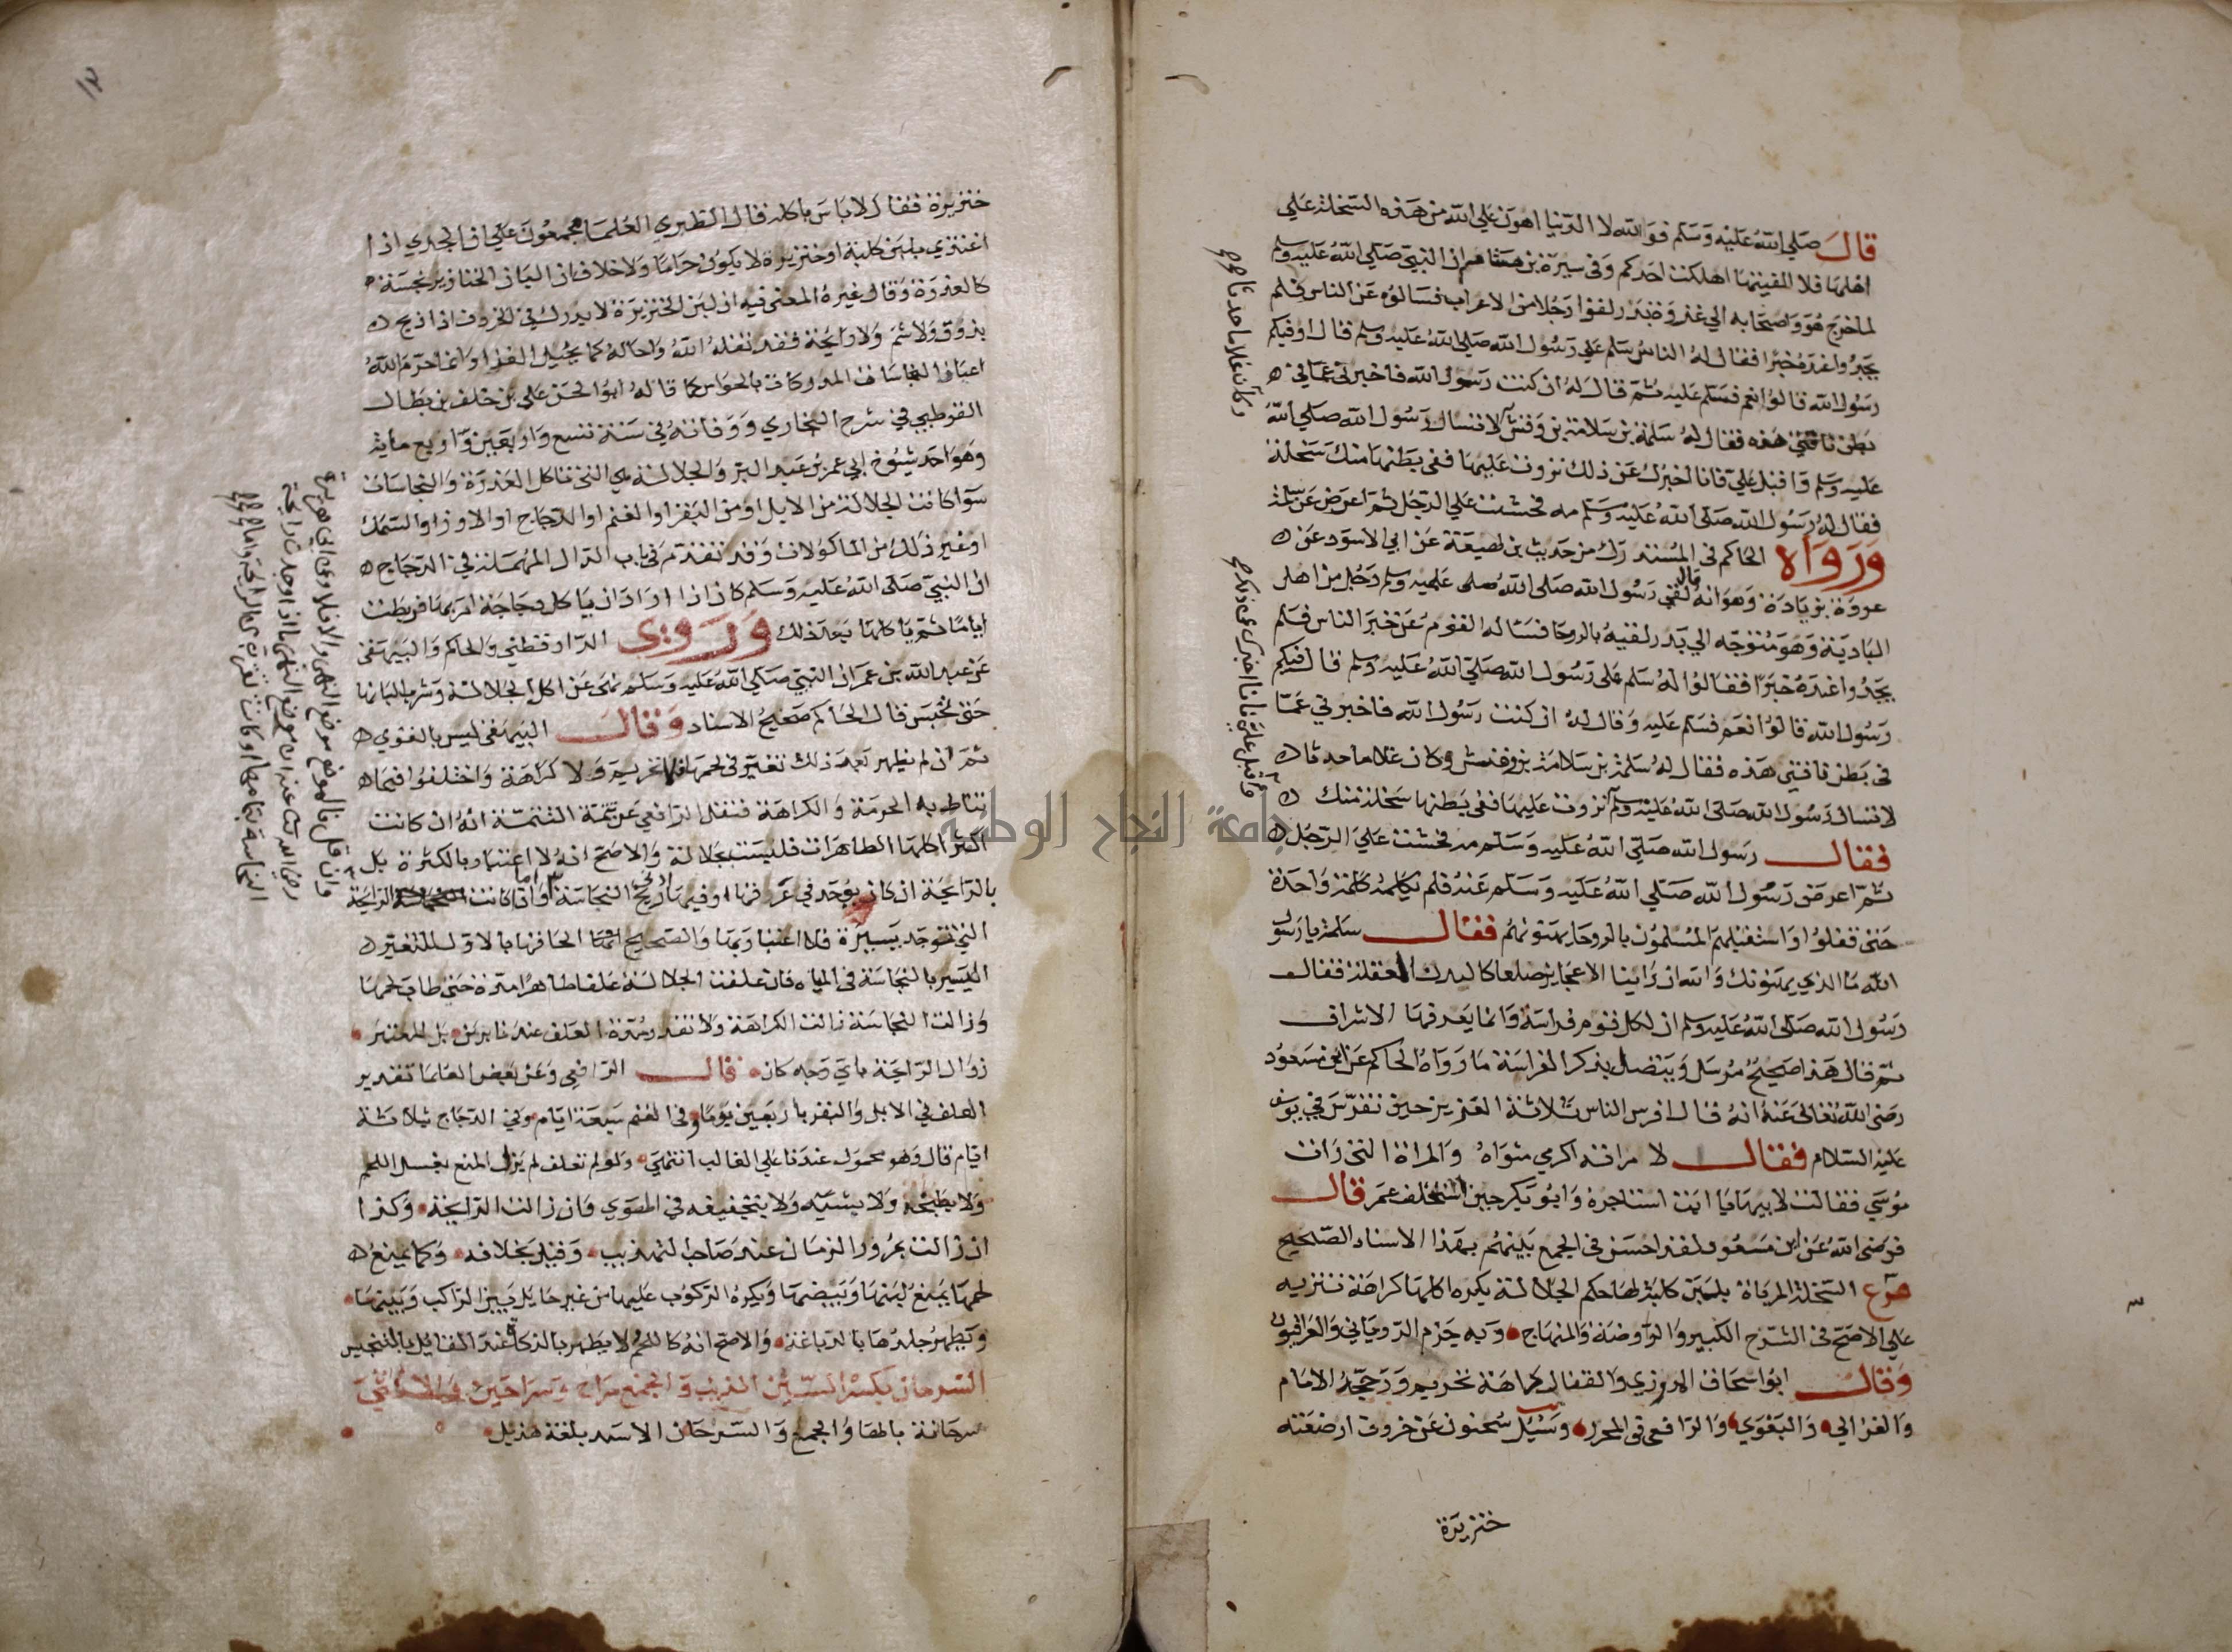 قال صلى الله عليه وسلم فوالله لا الدنيا اهون على الله من هذه السخلة على
اهلها فلا الفينها اهلكت احدكم وفي سيرة بن هشام ان النبي صلى الله عليه وسلم
لما خرج هو واصحابه الي غزوة بدر لقوا رجلا من الاعراب فسالوه عن الناس فلم
يجدوا عنده خبرا فقال له الناس سلم علي رسول الله صلى الله عليه وسلم قال اوفيكم
رسول الله قالوا نعم فسلم عليه ثم قال له ان كنت رسول الله فاخبرني عما في
بطن ناقتي هذه فقال له سلمة بن سلامة بن وقش لا تسال رسول الله صلى الله
عليه وسلم واقبل علي فانا اخبرك عن ذلك نزوت عليها ففي بطنها منك سخلة
فقال له رسول الله صلى الله عليه وسلم مه فحشت علي الرجل ثم اعرض عن سلمة
ورواه الحاكم في المستدرك من حديث بن لهيعة عن ابي الاسود عن
عروة بن يادة وهو انه قال لقي رسول الله صلى الله صلى عليه وسلم رجل من اهل
البادية وهو متوجه الي بدر لقيه بالروحا فساله القوم عن خبر الناس فلم
يجدوا عنده خبرا فقالوا له سلم على رسول الله صلى الله عليه وسلم قال افيكم
رسول الله قالوا نعم فسلم عليه وقال له ان كنت رسول الله فاخبرني عما
في بطن ناقتي هذه فقال له سلمة بن سلامة بن وقش وكان غلاما حدثا
لا تسال رسول الله صلى الله عليه وسلم نزوت عليها ففي بطنها سخلة منك
فقال رسول الله صلى الله عليه وسلم مه فحشت علي الرجل
ثم اعرض رسول الله صلى الله عليه وسلم عنه فلم يكلمه كلمة واحدة
حتى قفلوا واستقبلهم المسلمون بالروحا يهنونهم فقال سلمة يا رسول
الله ما الذي يهنونك والله ان راينا الا عجايز صلعا كالبدن المعقلة فقال
رسول الله صلى الله عليه وسلم ان لكل قوم فراسة وانما يعرفها الاشراف
ثم قال هذا صحيح مرسل ويتصل بذكر الفراسة ما رواه الحاكم عن ابن مسعود
رضي الله تعالى عنه انه قال افرس الناس ثلاثة العزيز حين تفرس في يوسف
عليه السلام فقال لامراته اكرمي مثواه والمراة التي رات
موسي فقالت لابيها يا ابت استاجره وابو بكر حين استخلف عمر قال
فرضي الله عن ابن مسعود لقد احسن في الجمع بينهم بهذا الاسناد الصحيح
فرع السخلة المرباة بلبن كلبة لها حكم الجلالة يكره اكلها كراهة تنزيه
علي الاصح في الشرح الكبير والروضة والمنهاج وبه جزم الروياني والعراقيون
وقال ابو اسحاق المروزي والقفال كراهة تحريم ورجحه الامام
والغزالي والبغوي والرافعي في المحرر وسئل سحنون عن خروف ارضعته
خنزيرة
وكان غلاما حدثا
واقبل علي فانا اخبرك عن ذلك
٣
١٢
خنزيرة فقال لا باس باكله قال الطبري العلما مجمعون علي ان الجدي اذا
اغتذي بلبن كلبة او خنزيرة لا يكون حراما ولا خلاف ان البان الخنازير نجسة
كالعذرة وقال غيره المعنى فيه ان لبن الخنزيرة لا يدرك في الخروف اذا ذبح
بذوق ولا شم ولا رايحة فقد نقله الله واحاله كما يحيل الغذا وانما حرم الله
اعيان النجاسات المدركات بالحواس كما قاله ابو الحسن علي بن خلف بن بطال
القرطبي في شرح البخاري ووفاته في سنة تسع واربعين واربع ماية
وهو احد شيوخ ابي عمر بن عبد البر والجلالة هي التي تاكل العذرة والنجاسات
سوا كانت الجلالة من الابل او من البقر او الغنم او الدجاج او الاوز او السمك
او غير ذلك من الماكولات وقد تقدم في باب الدال المهملة في الدجاج
ان النبي صلى الله عليه وسلم كان اذا اراد ان ياكل دجاجة امر بها فربطت
اياما ثم ياكلها بعد ذلك وروي الدارقطني والحاكم والبيهقي
عن عبد الله بن عمر ان النبي صلى الله عليه وسلم نهى عن اكل الجلالة وشرب البانها
حتى تحبس قال الحاكم صحيح الاسناد وقال البيهقي ليس بالقوي
ثم ان لم يظهر بعد ذلك تغير في لحمها فلا تحريم ولا كراهة واختلفوا فيما
تناط به الحرمة والكراهة فنقل الرافعي عن تتمة التتمة انه ان كانت
اكثر اكلها الطاهرات فليست بجلالة والاصح انه لا اعتبار بالكثرة بل
بالرايحة ان كان يوجد في عرقها او فيها ادنى ريح النجاسة واما ان كانت الرايحة
التي توجد يسيرة فلا اعتبار بها والصحيح انها الحاقها بالاول للتغير
اليسير بالنجاسة في المياه فان علفت الجلالة علفا طاهرا مدة حتى طاب لحمها
وزالت النجاسة زالت الكراهة ولا تقدر مدة العلف عندنا بزمن بل المعتبر
زوال الرايحة باي وجه كان قال الرافعي وعن بعض العلما تقدير
العلف في الابل والبقر باربعين يوما وفي الغنم سبعة ايام وفي الدجاج ثلاثة
ايام قال وهو محمول عندنا علي الغالب انتهي ولو لم تعلف لم يزل المنع بغسل اللحم
ولا بطبخه ولا بشيه ولا بتجفيفه في الهوي وان زالت الرايحة وكذا
ان زالت بمرور الزمان عند صاحب التهذيب وقيل بخلافه وكما يمنع
لحمها يمنع لبنها وبيضها ويكره الركوب عليها من غير حايل بين الراكب وبينها
ويطهر جلدها بالدباغة والاصح انه كاللحم لا يطهر بالذكاة عند القايل بالتنجيس
السرحان بكسر السين الذيب والجمع سراح وسراحين والانثي
سرحانة بالهاء والجمع والسرحان الاسد بلغة هذيل
جامعة النجاح الوطنية